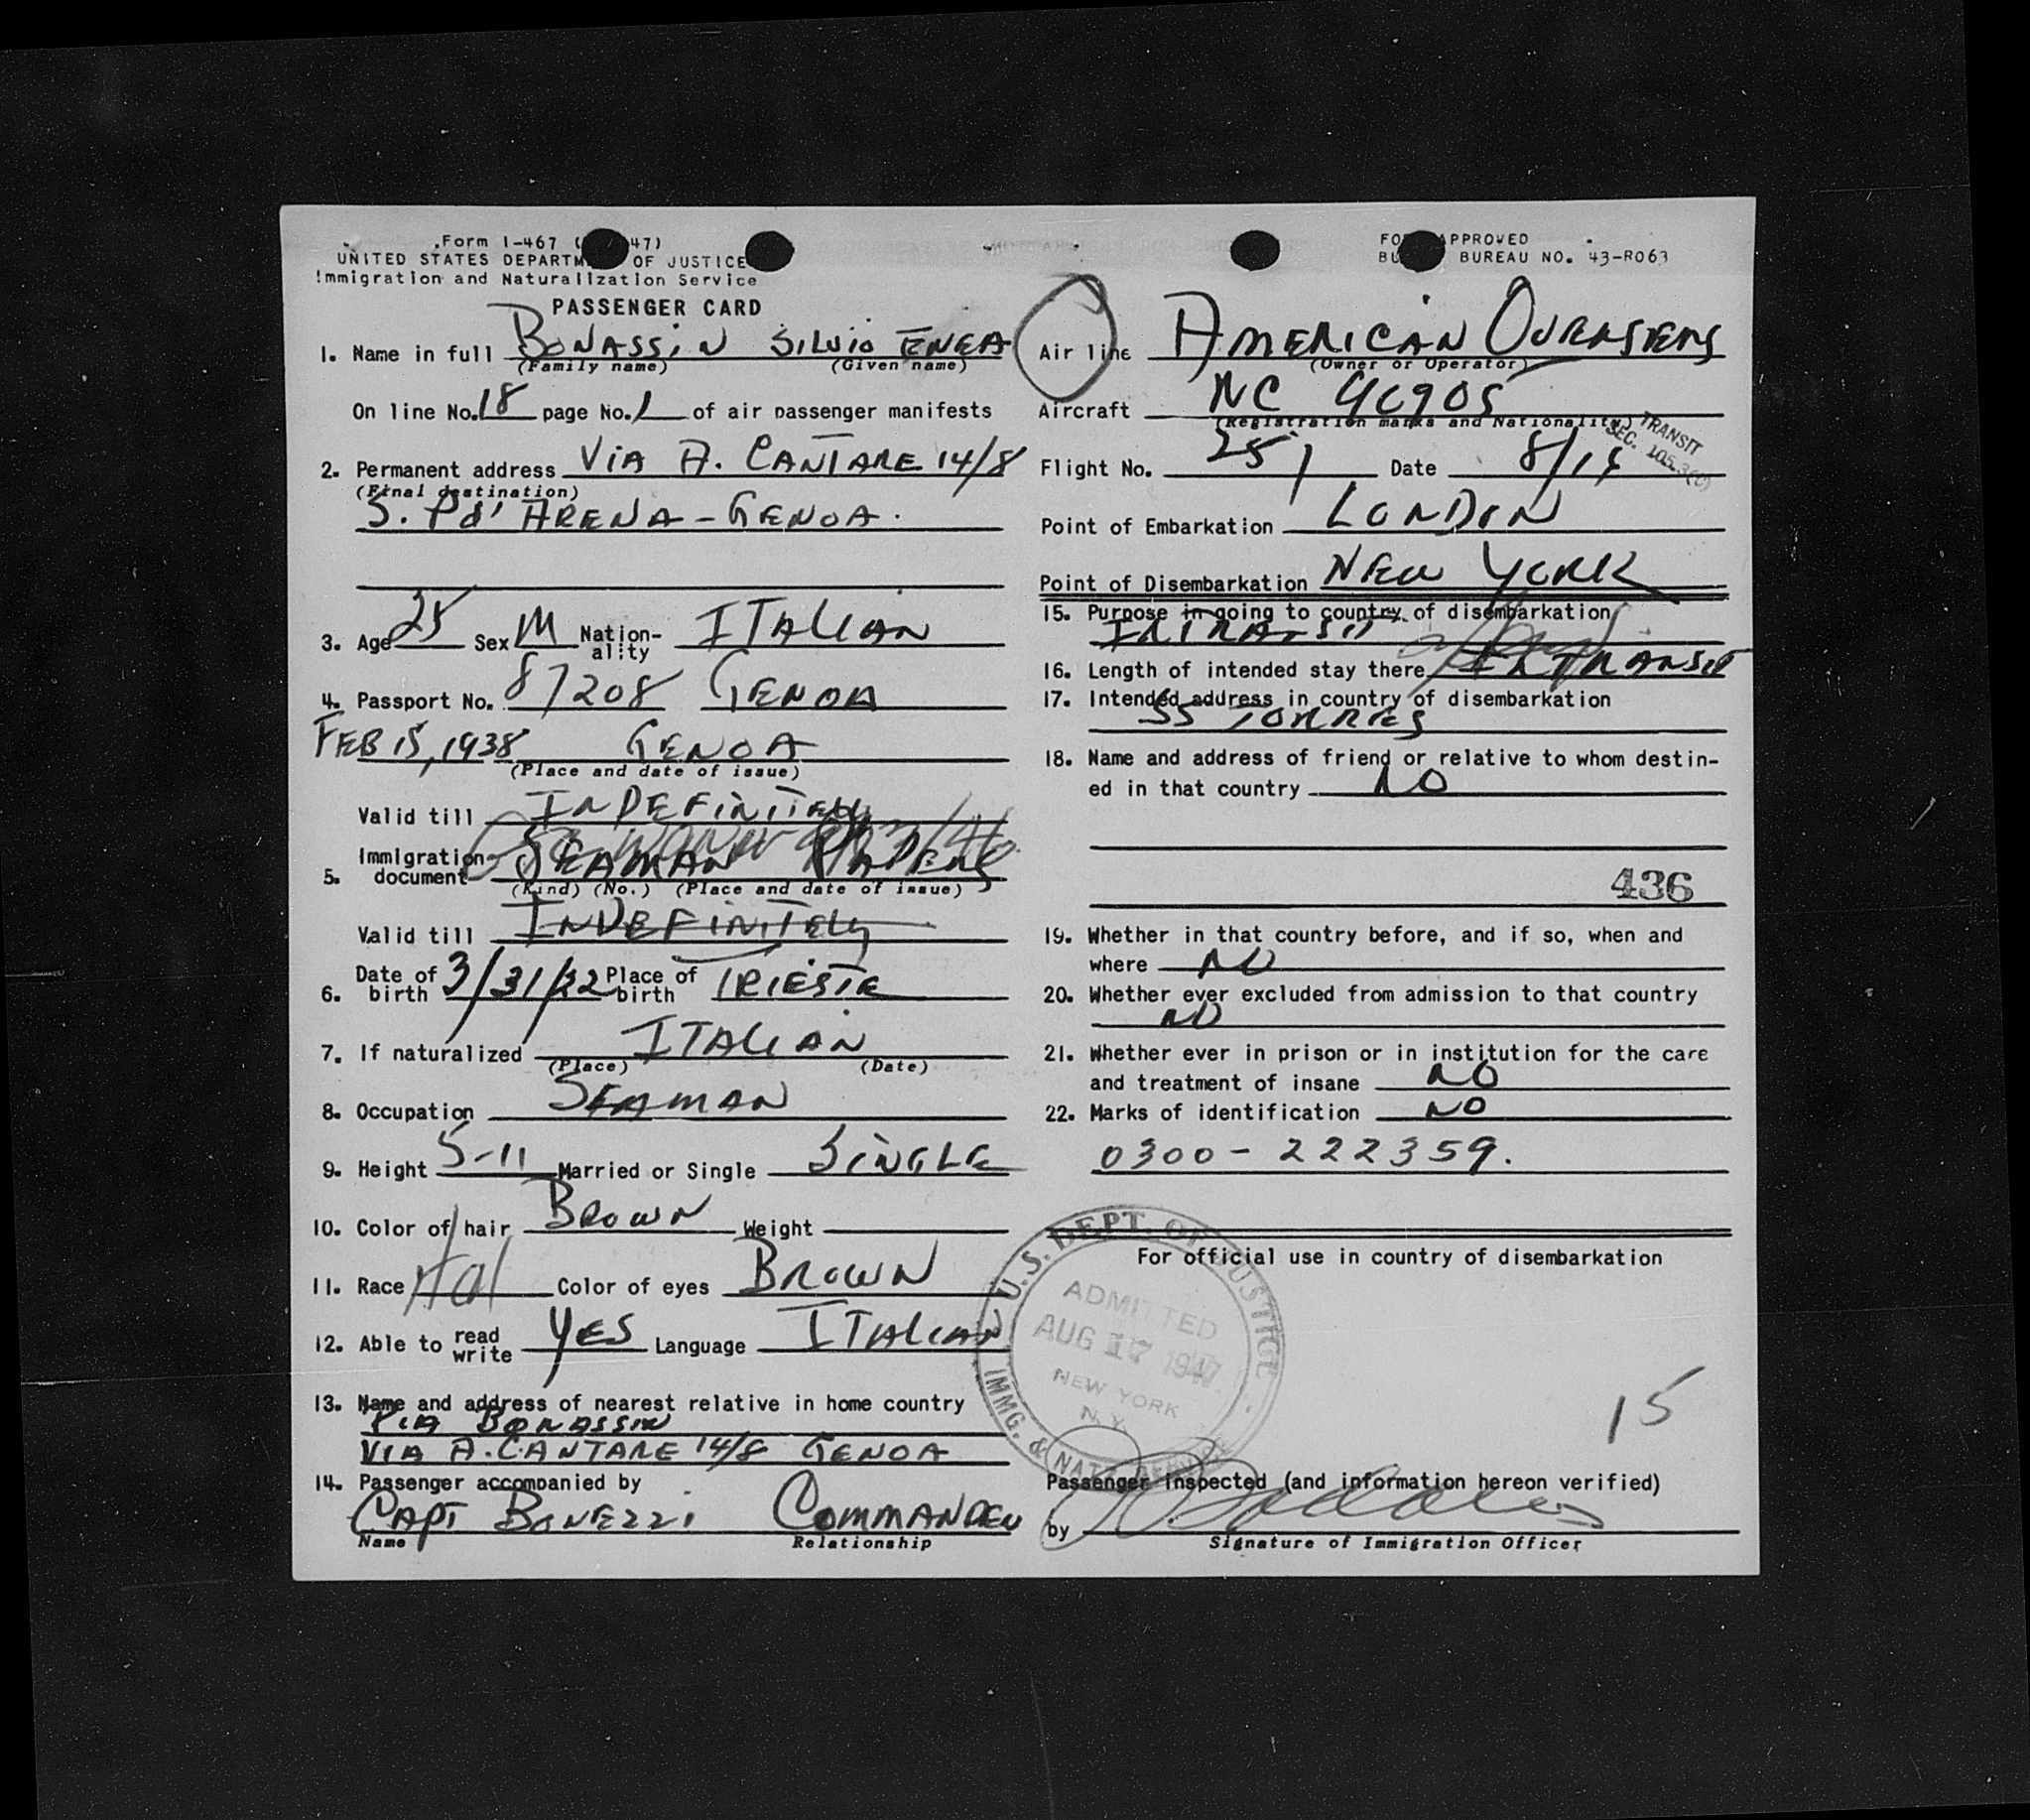 Form I-467 ( 47)
UNITED STATES DEPARTM OF JUSTICE
Immigration and Naturalization Service
PASSENGER CARD
1. Name in full BONASSIN SILVIO ENEA
(Family name) (Given name)
On line No. 18 page No. 1 of air passenger manifests
2. Permanent address VIA A. CANTARE 14/8
(Final destination)
S. Pd' ARENA - GENOA.
3. Age 25 Sex M Nation-ality ITALIAN
4. Passport No. 87208 GENOA
FEB 15, 1938 GENOA
(Place and date of issue)
Valid till INDEFINITELY
5. Immigration document SEAMAN PAPERS
(Kind) (No.) (Place and date of issue)
Valid till INDEFINITELY
6. Date of birth 3/31/22 Place of birth TRIESTE
7. If naturalized ITALIAN
(Place) (Date)
8. Occupation SEAMAN
9. Height 5-11 Married or Single SINGLE
10. Color of hair BROWN Weight
11. Race Ital Color of eyes BROWN
12. Able to read write YES Language ITALIAN
13. Name and address of nearest relative in home country
PIA BONASSIN
VIA A. CANTARE 14/8 GENOA
14. Passenger accompanied by
CAPT BONEZZI COMMANDER
Name Relationship
FO APPROVED
BU BUREAU NO. 43-R063
Air line AMERICAN OVERSEAS
(Owner or Operator)
Aircraft NC 90905
(Registration marks and Nationality)
TRANSIT
SEC. 105.3(b)
Flight No. 251 Date 8/16
Point of Embarkation LONDON
Point of Disembarkation NEW YORK
15. Purpose in going to country of disembarkation
INTRANSIT
16. Length of intended stay there INTRANSIT
17. Intended address in country of disembarkation
SS TORRES
18. Name and address of friend or relative to whom destin-
ed in that country NO
436
19. Whether in that country before, and if so, when and
where NO
20. Whether ever excluded from admission to that country
NO
21. Whether ever in prison or in institution for the care
and treatment of insane NO
22. Marks of identification NO
0300-222359.
For official use in country of disembarkation
U.S. DEPT. OF JUSTICE
ADMITTED
AUG 17 1947
NEW YORK
N.Y.
IMMG. & NATZ.
15
Passenger inspected (and information hereon verified)
by
Signature of Immigration Officer